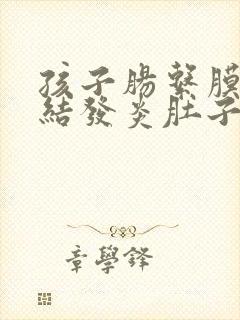 孩子腸繫膜
結發炎肚子
章學鋒